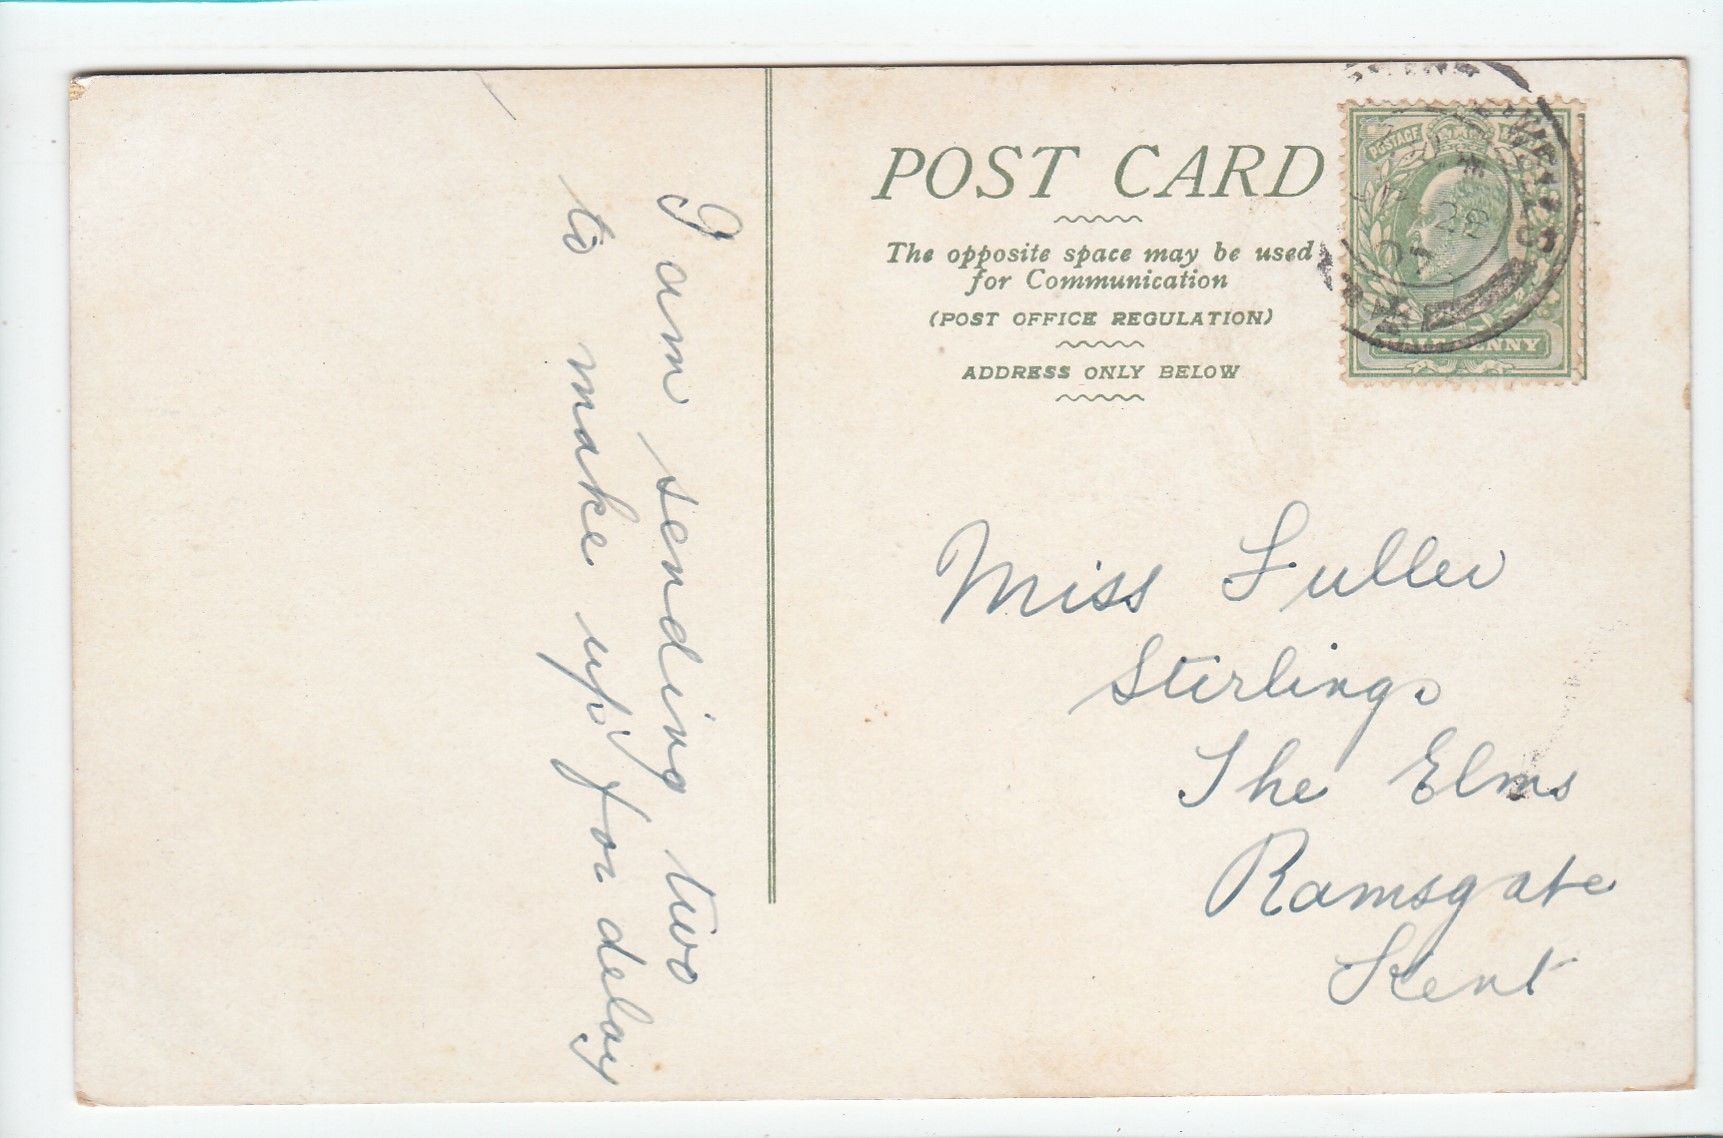 I am sending two
to make up for delay
POST CARD
The opposite space may be used
for Communication
(POST OFFICE REGULATION)
ADDRESS ONLY BELOW
POSTAGE
HALFPENNY
WELLS
28
07
Miss Fuller
Sterlings
The Elms
Ramsgate
Kent